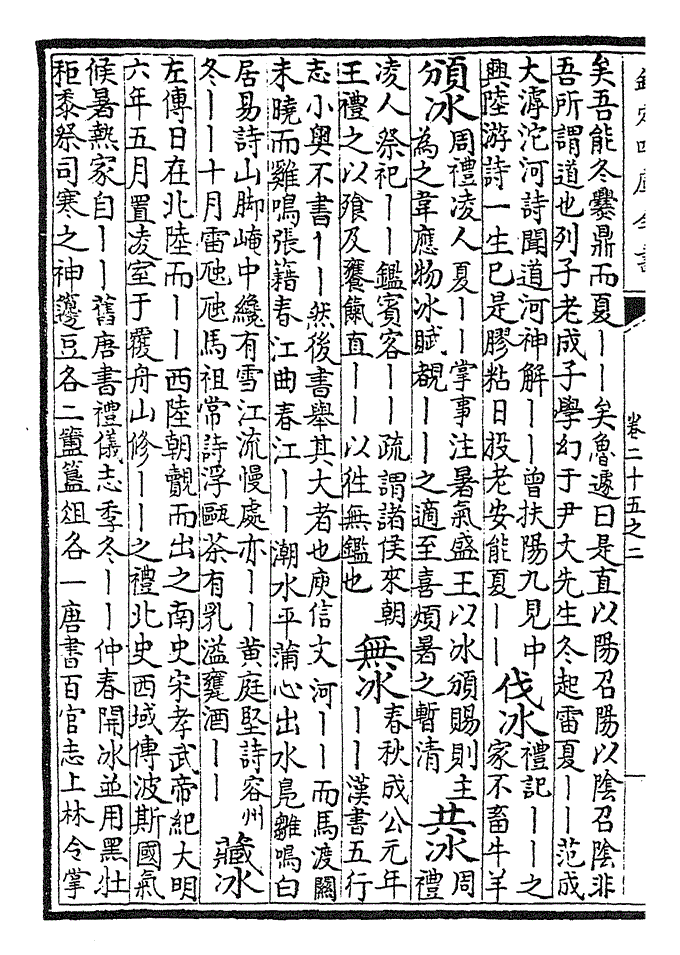 欽定四庫全書
卷二十五之二
矣吾能冬爨鼎而夏丨丨矣魯遽曰是直以陽召陽以陰召陰非
吾所謂道也列子老成子學幻于尹文先生冬起雷夏丨丨范成
大滹沱河詩聞道河神解丨丨曾扶陽九見中
興陸游詩一生已是膠粘日投老安能夏丨丨
伐冰
禮記丨丨之
家不畜牛羊
頒冰
周禮凌人夏丨丨掌事注暑氣盛王以冰頒賜則主
為之韋應物冰賦覩丨丨之適至喜煩暑之暫清
共冰
周
禮
凌人祭祀丨丨鑑賓客丨丨疏謂諸侯來朝
王禮之以飧及饔餼直丨丨丨以往無鑑也
無冰
春秋成公元年
丨丨丨漢書五行
志小奧不書丨丨然後書舉其大者也庾信文河丨丨而馬渡關
未曉而雞鳴張籍春江曲春江丨丨潮水平蒲心出水鳧雛鳴白
居易詩山脚崦中纔有雪江流慢處亦丨丨黄庭堅詩容州
冬丨丨十月雷虺虺馬祖常詩浮甌茶有乳溢甕酒丨丨
藏冰
左傳日在北陸而丨丨西陸朝覿而出之南史宋孝武帝紀大明
六年五月置凌室于覆舟山修丨丨之禮北史西域傳波斯國氣
候暑熱家自丨丨舊唐書禮儀志季冬丨丨仲春開冰並用黑牡
秬黍祭司寒之神籩豆各二簠簋俎各一唐書百官志上林令掌